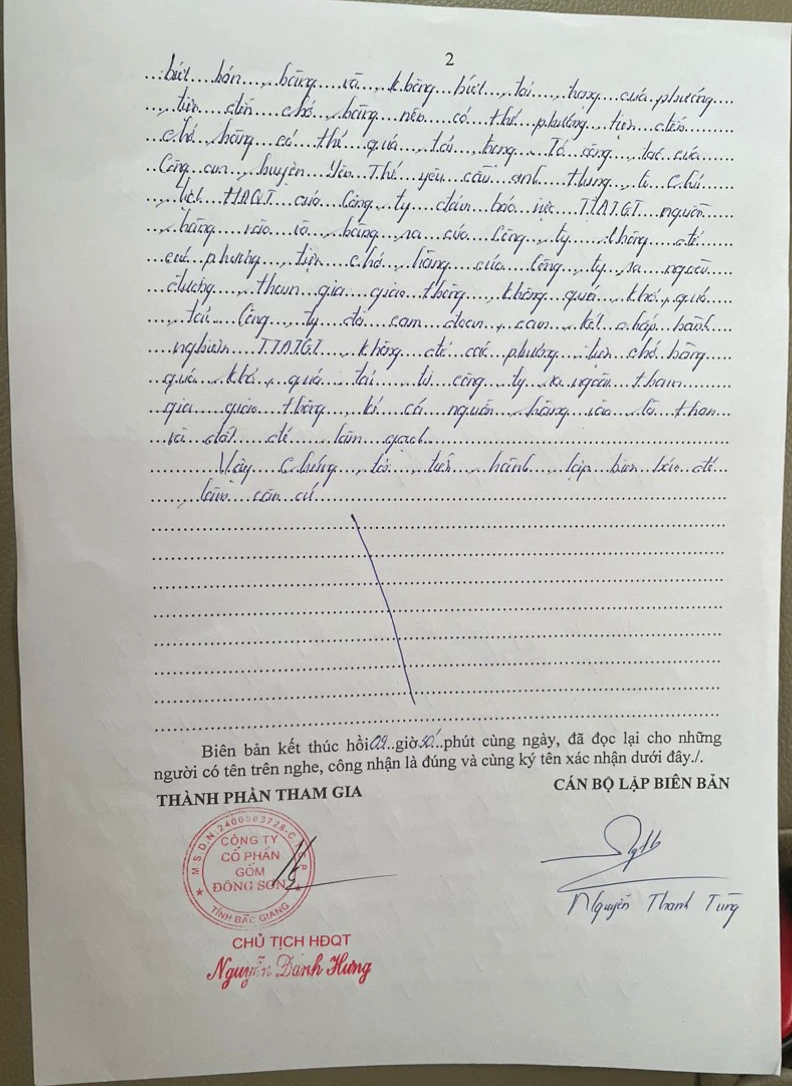 2
biết bán hàng và không biết tải trọng của phương
tiện đến chở hàng nên có thể phương tiện đến
chở hàng có thể quá tải trọng. Tổ công tác của
Công an huyện Yên Thế yêu cầu anh Hưng là chủ
tịch HĐQT của Công ty đảm bảo việc TTATGT nguồn
hàng vào và hàng ra của Công ty không để
các phương tiện chở hàng của Công ty ra ngoài
đường tham gia giao thông không quá khổ, quá
tải. Công ty đã cam đoan, cam kết chấp hành
nghiêm TTATGT, không để các phương tiện chở hàng
quá khổ, quá tải từ công ty ra ngoài tham
gia giao thông, kể cả nguồn hàng vào là than
và đất để làm gạch
Vậy chúng tôi tiến hành lập biên bản để
làm căn cứ
Biên bản kết thúc hồi 09 giờ 30 phút cùng ngày, đã đọc lại cho những
người có tên trên nghe, công nhận là đúng và cùng ký tên xác nhận dưới đây./.
THÀNH PHẦN THAM GIA
CÁN BỘ LẬP BIÊN BẢN
CÔNG TY
CỔ PHẦN
GỐM
ĐÔNG SƠN
TỈNH BẮC GIANG
Nguyễn Thanh Tùng
CHỦ TỊCH HĐQT
Nguyễn Danh Hưng